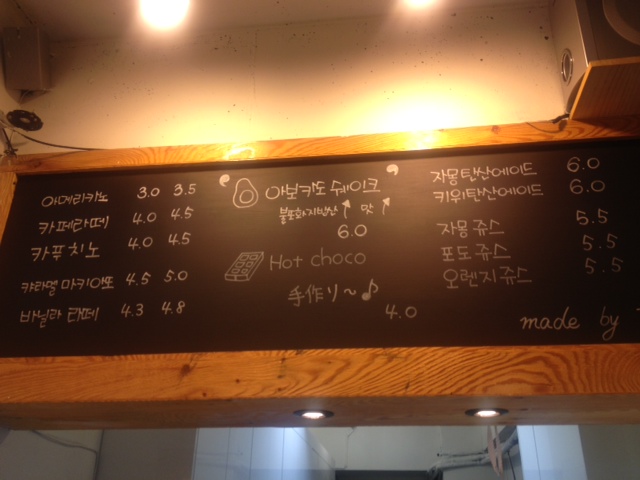 아메리카노 3.0 3.5
카페라떼 4.0 4.5
카푸치노 4.0 4.5
캬라멜 마키아또 4.5 5.0
바닐라 라떼 4.3 4.8
아보카도 쉐이크
불포화지방산↑ 맛↑
6.0
Hot choco
手作り~♪
4.0
자몽탄산에이드 6.0
키위탄산에이드 6.0
자몽쥬스 5.5
포도쥬스 5.5
오렌지쥬스 5.5
made by